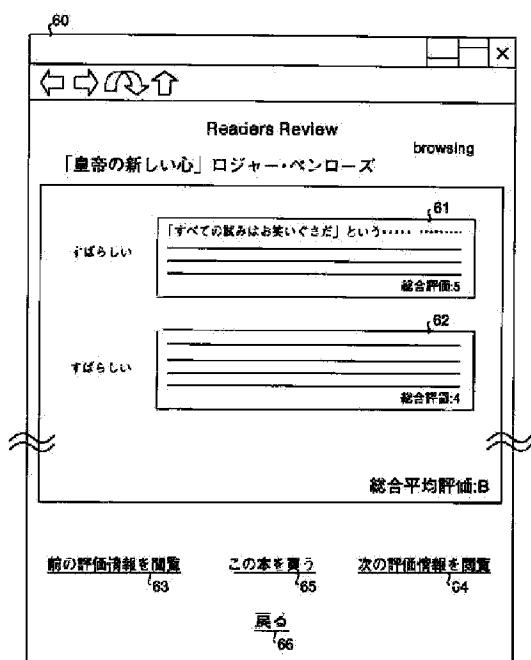 60
×
Readers Review
browsing
「皇帝の新しい心」ロジャー・ペンローズ
61
「すべての試みはお笑いぐさだ」という…… ………
すばらしい
総合評価:5
62
すばらしい
総合評価:4
総合平均評価:B
前の評価情報を閲覧 この本を買う 次の評価情報を閲覧
63 65 64
戻る
66